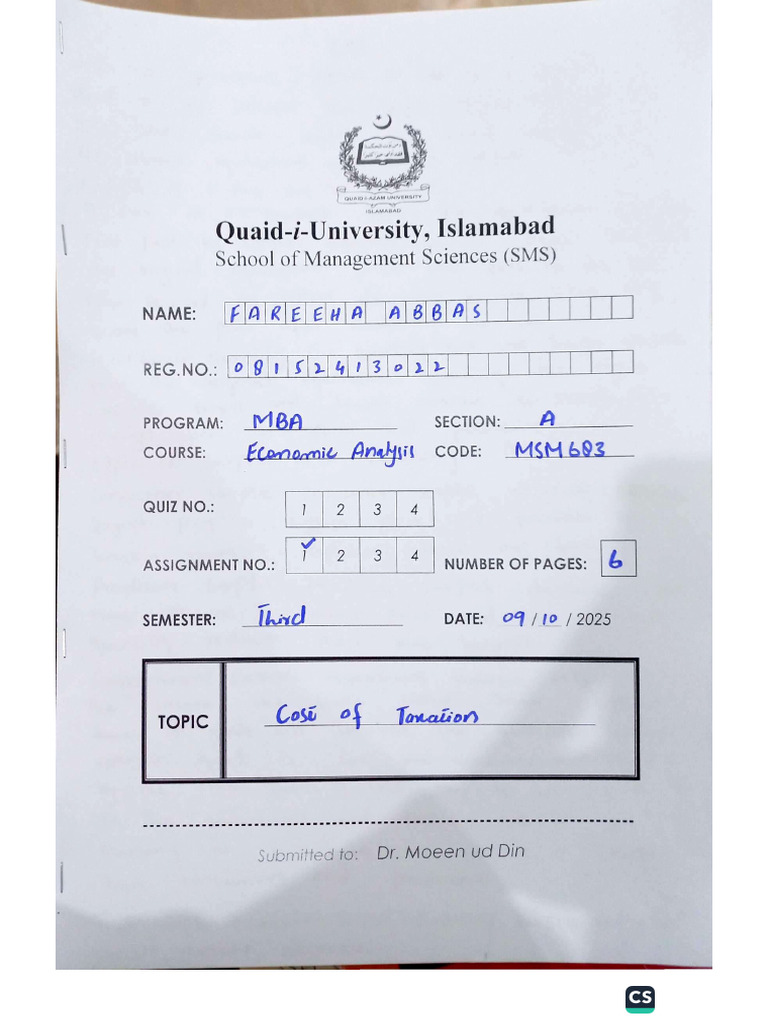 QUAID-I-AZAM UNIVERSITY
ISLAMABAD
Quaid-i-University, Islamabad
School of Management Sciences (SMS)
NAME: FAREEHA ABBAS
REG.NO.: 08152413022
PROGRAM: MBA SECTION: A
COURSE: Economic Analysis CODE: MSM603
QUIZ NO.: 1 2 3 4
ASSIGNMENT NO.: 1 2 3 4 NUMBER OF PAGES: 6
SEMESTER: Third DATE: 09 / 10 / 2025
TOPIC Cost of Taxation
Submitted to: Dr. Moeen ud Din
CS